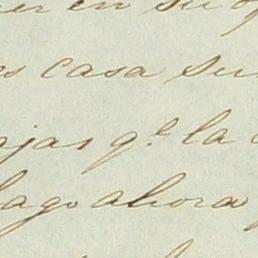 en su
casa su
jas q.e la
lago ahora